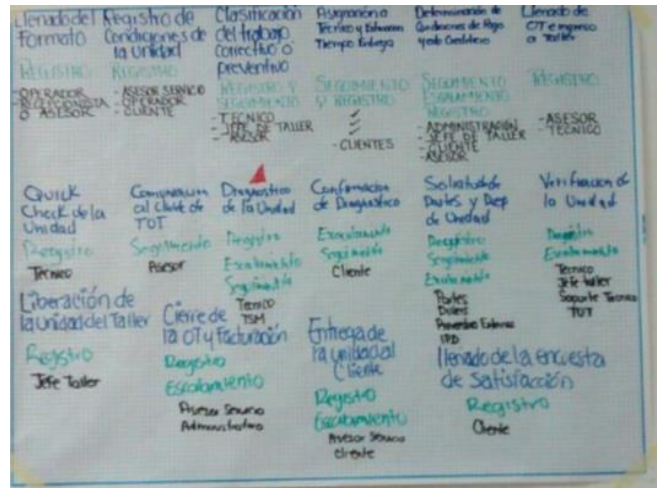 Llenado del
Formato
REGISTRO
- OPERADOR
- RECEPCIONISTA
O ASESOR
Registro de
Condiciones de
la Unidad
REGISTRO
- ASESOR SERVICIO
- OPERADOR
- CLIENTE
Clasificación
del trabajo
correctivo o
preventivo
REGISTRO Y
SEGUIMIENTO
- TECNICO
- JEFE DE TALLER
- ASESOR
Asignación a
Tecnico y Estimacion
Tiempo Entrega
SEGUIMIENTO
Y REGISTRO
- CLIENTES
Determinación de
Condiciones de Pago
y/o Crediticio
SEGUIMIENTO
ESCALAMIENTO
REGISTRO
- ADMINISTRACIÓN
- JEFE DE TALLER
- CLIENTE
- ASESOR
Llenado de
OT e ingreso
a Taller
REGISTRO
- ASESOR
- TECNICO
Quick
Check de la
Unidad
Registro
Tecnico
Comunicacion
al Cliente de
TOT
Seguimiento
Asesor
Diagnostico
de la Unidad
Registro
Escalamiento
Seguimiento
Tecnico
TSM
Confirmacion
de Diagnostico
Escalamiento
Seguimiento
Cliente
Solicitud de
Partes y Dep
de Unidad
Registro
Seguimiento
Escalamiento
Partes
Proveedor Externo
IPD
Verificacion de
la Unidad
Registro
Escalamiento
Tecnico
Jefe taller
Soporte Tecnico
TOT
Liberación de
la unidad del Taller
Registro
Jefe Taller
Cierre de
la OT y Facturación
Registro
Escalamiento
Asesor Servicio
Administrativo
Entrega de
la unidad al
Cliente
Registro
Escalamiento
Asesor Servicio
Cliente
llenado de la encuesta
de Satisfacción
Registro
Cliente